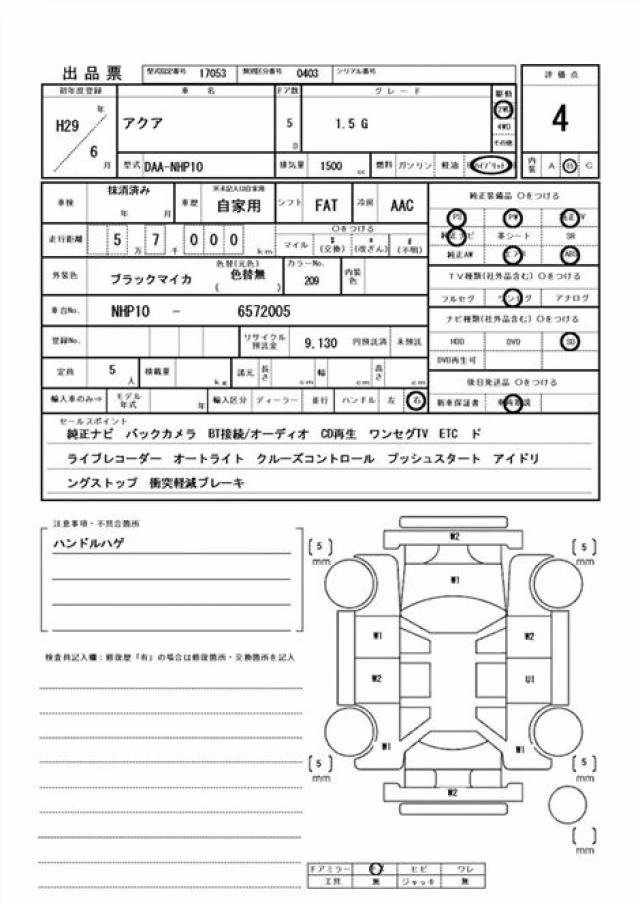 出品票 型式指定番号 17053 類別区分番号 0403 シリアル番号
評価点
初年度登録 車名 ドア数 グレード 駆動
H29 年 アクア 5 D 1.5 G 2WD 4
6 月 4WD
その他
型式 DAA-NHP10 排気量 1500 cc 燃料 ガソリン 軽油 ハイブリッド 内装 A B C
車検 抹消済み 年 月 車歴 ※未記入は自家用 自家用 シフト FAT 冷房 AAC
純正装備品 ○をつける
PS PW 純正TV
走行距離 5 7 千 0 0 0 km ○をつける
マイル $(交換) *(改ざん) #(不明)
純正ナビ 革シート SR
純正AW エアB ABS
外装色 ブラックマイカ 色替(元色) 色替無 ( ) カラーNo. 209 内装色
TV種類(社外品含む) ○をつける
フルセグ ワンセグ アナログ
車台No. NHP10 - 6572005
ナビ種類(社外品含む) ○をつける
登録No. リサイクル預託金 9,130 円預託済 未預託
HDD DVD SD
DVD再生可
定員 5 人 積載量 kg 諸元 長さ cm 幅 cm 高さ cm
後日発送品 ○をつける
輸入車のみ⇒ モデル年式 年 輸入区分 ディーラー 並行 ハンドル 左 右
新車保証書
セールスポイント
純正ナビ バックカメラ BT接続/オーディオ CD再生 ワンセグTV ETC ド
ライブレコーダー オートライト クルーズコントロール プッシュスタート アイドリ
ングストップ 衝突軽減ブレーキ
注意事項・不具合箇所
ハンドルハゲ
検査員記入欄:修復歴「有」の場合は修復箇所・交換箇所を記入
W2
[5] mm [5] mm
W1
W1 W2
W2 U1
W1 W1
[5] mm [5] mm
W2
[ ] mm
ドアミラー キズ ヒビ ワレ
工具 無 ジャッキ 無